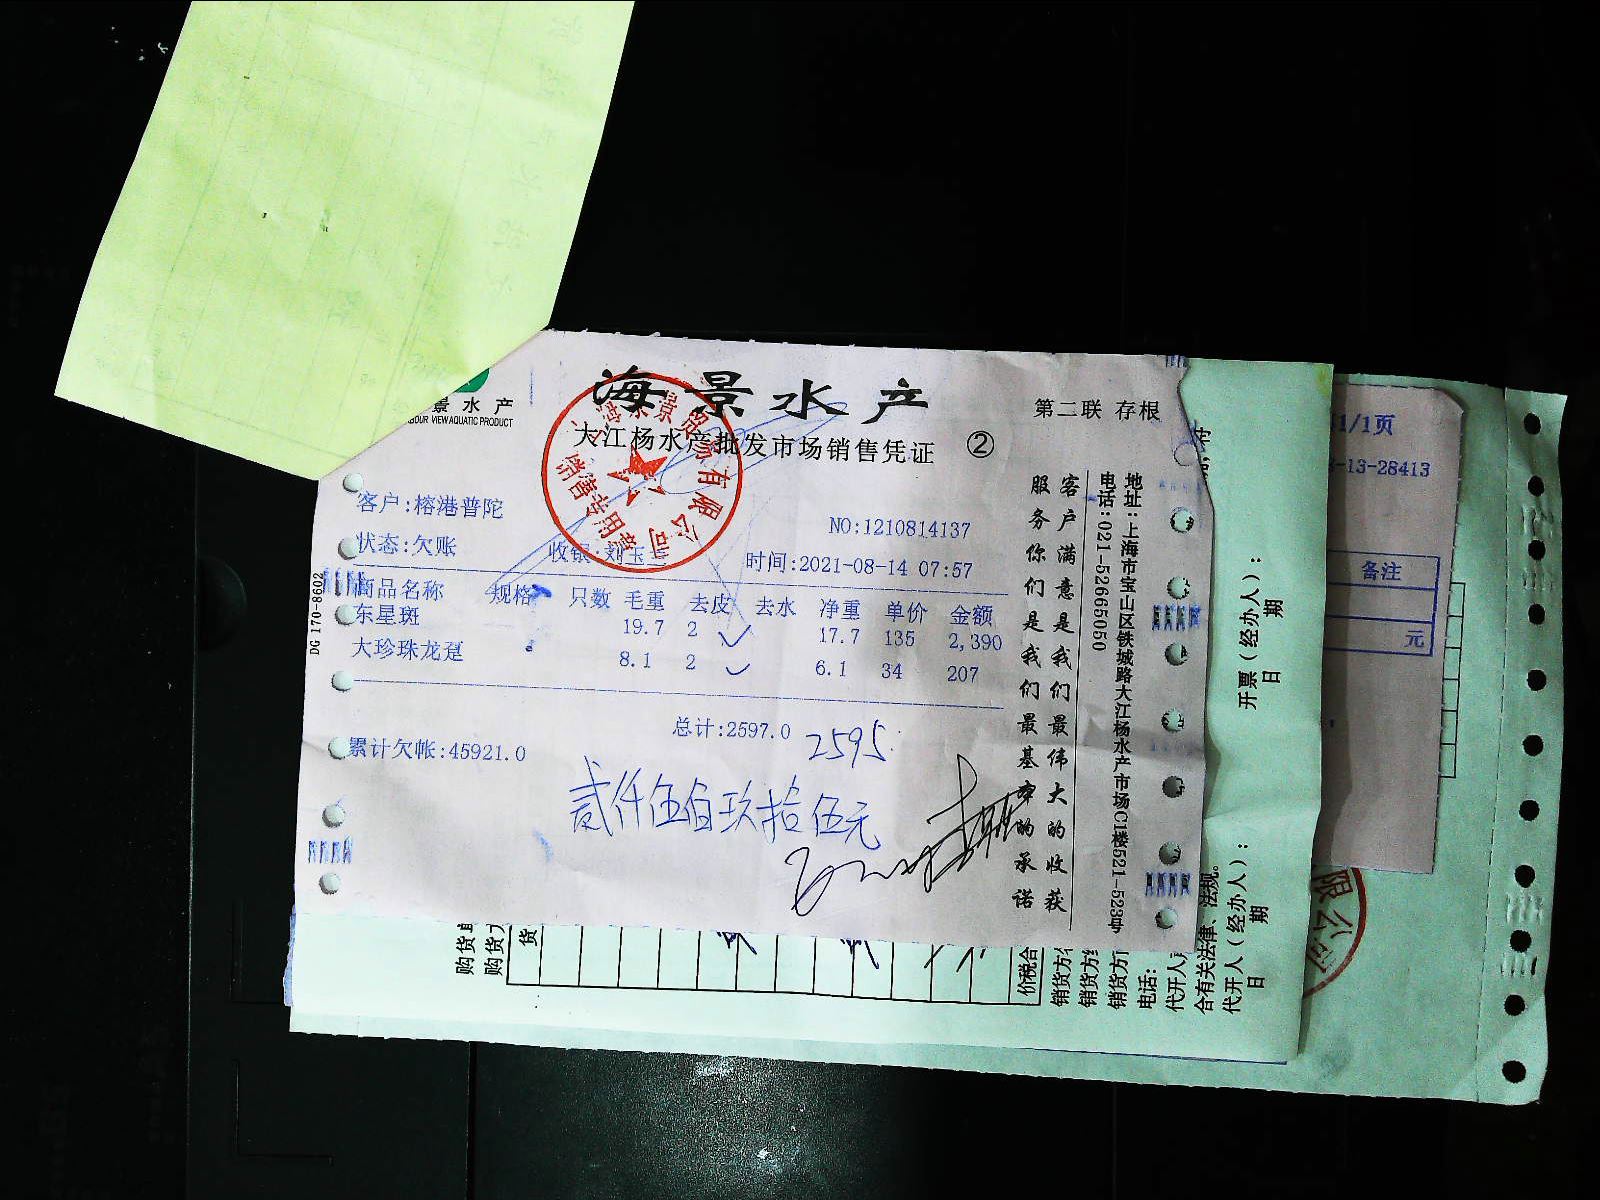 海景水产
景水产
BOUR VIEW AQUATIC PRODUCT
第二联 存根
大江杨水产批发市场销售凭证 ②
销售专用章
有限公司
客户:榕港普陀
NO:1210814137
状态:欠账 收银:刘玉兰 时间:2021-08-14 07:57
商品名称 规格 只数 毛重 去皮 去水 净重 单价 金额
东星斑 19.7 2 17.7 135 2,390
大珍珠龙趸 8.1 2 6.1 34 207
总计:2597.0 2595
累计欠帐:45921.0
贰仟伍佰玖拾伍元
客户满意是我们最伟大的收获
服务你们是我们最基本的承诺
地址:上海市宝山区铁城路大江杨水产市场C1楼521-523号
电话:021-52665050
DG 170-8602
1/1页
-13-28413
备注
元
开票(经办人):
日期
代开人(经办人):
日期
含有关法律、法规。
购货
购货方
货
价税合
销货方
销货方
销货方
电话:
代开人
限公司